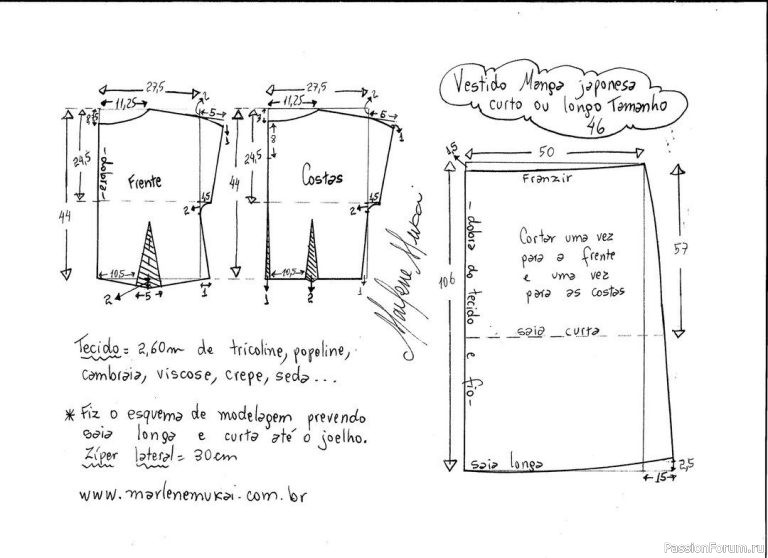 Vestido Manga japonesa
curto ou longo Tamanho
46
27,5
11,25
2
5
8
1
24,5
44
-dobra-
Frente
1,5
2
10,5
5
2
1
27,5
11,25
2
6
8
1
24,5
44
Costas
1,5
2
10,5
1
2
1
Marlene Mukai
1,5
50
Franzir
106
57
- dobra do tecido e fio-
Cortar uma vez
para a frente
e uma vez
para as costas
saia curta
saia longa
15
2,5
Tecido = 2,60m de tricoline, popeline,
cambraia, viscose, crepe, seda...
* Fiz o esquema de modelagem prevendo
saia longa e curta até o joelho.
Zíper lateral = 30cm
www.marlenemukai.com.br
PassionForum.ru